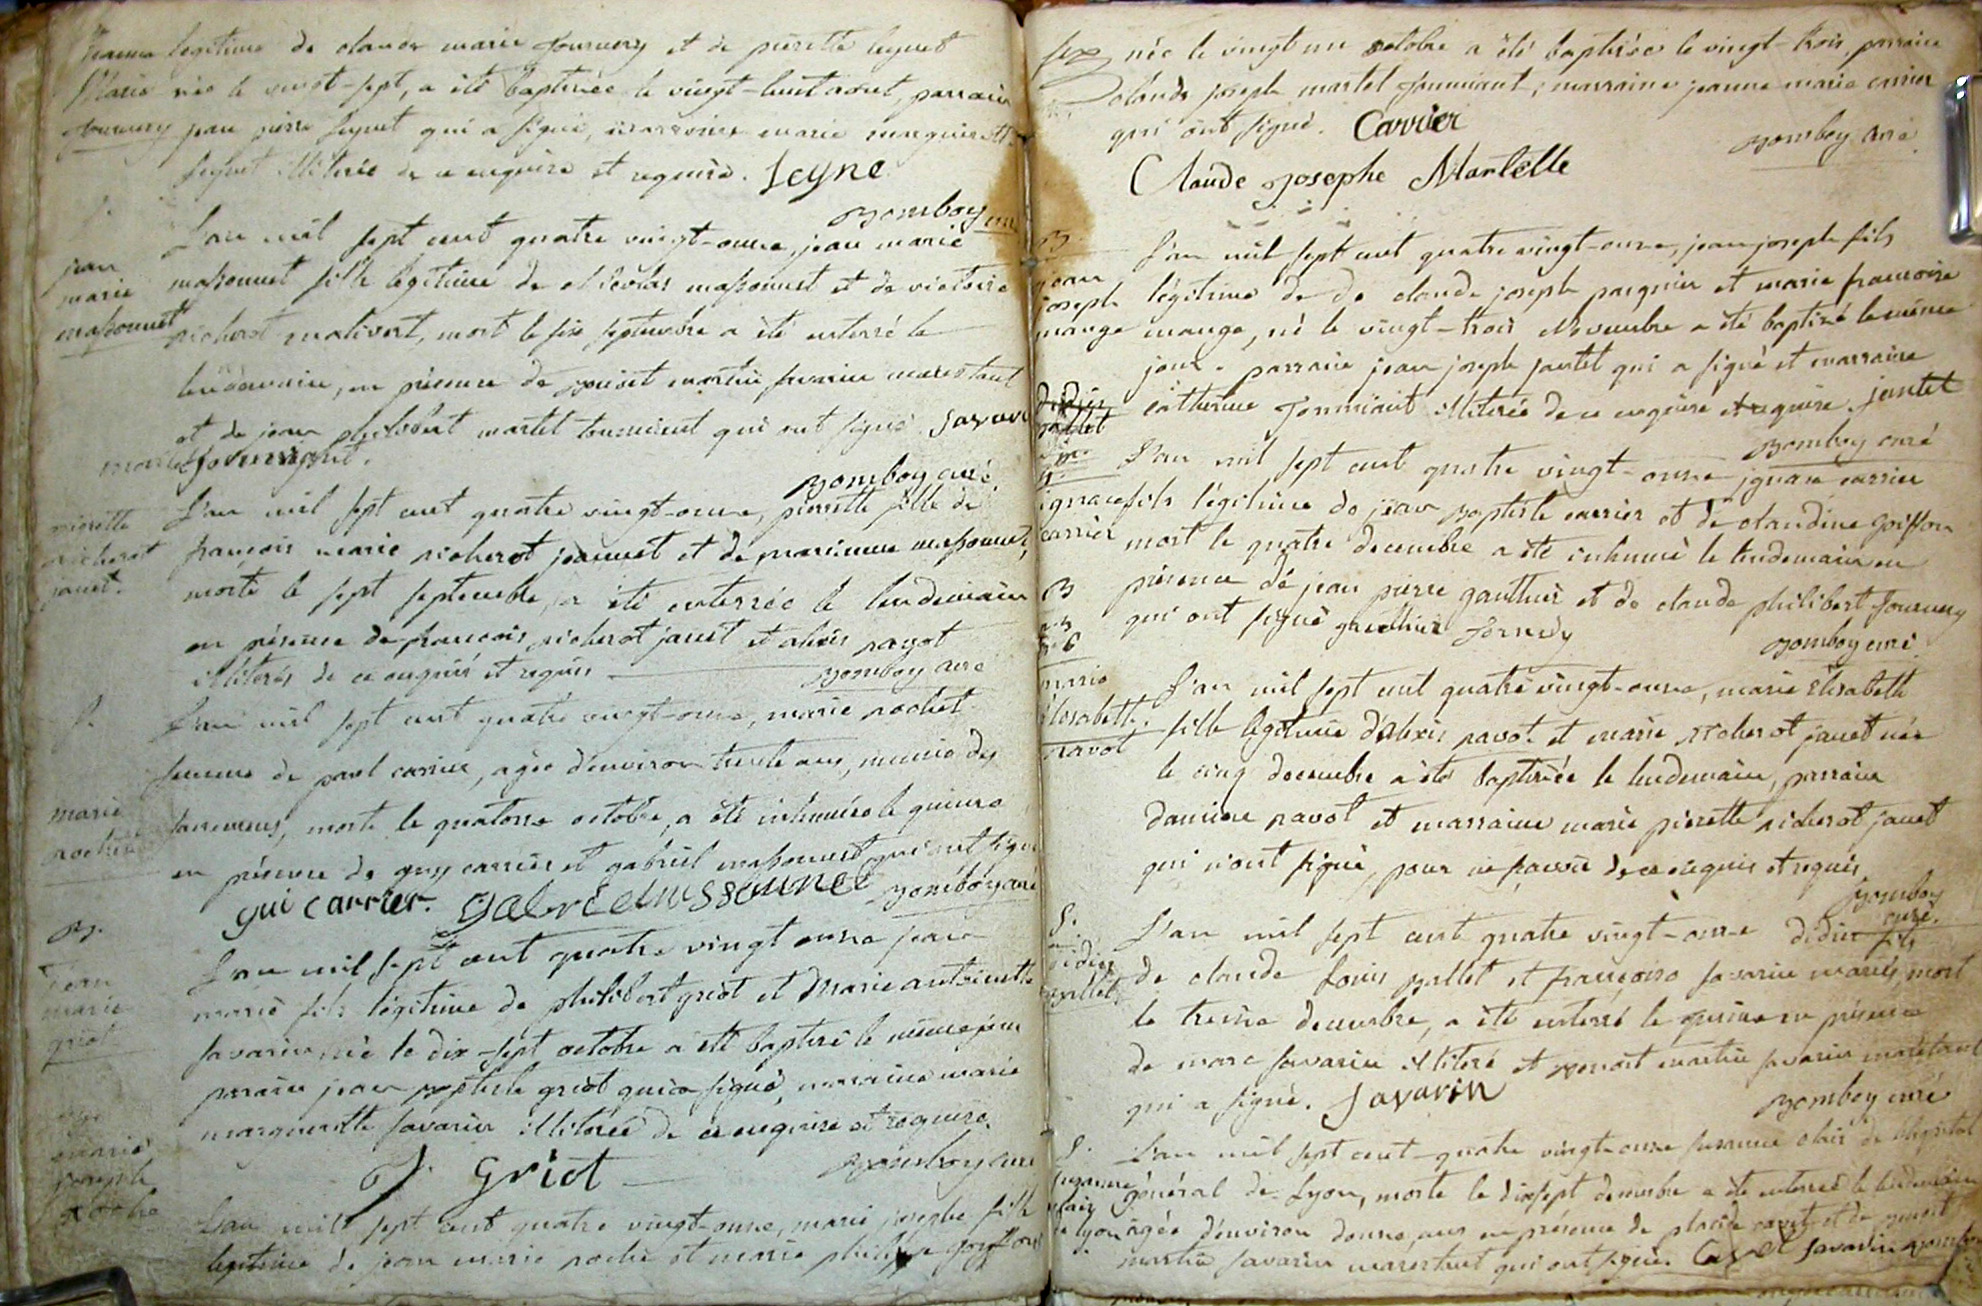 jeanne légitime de claude marie fournery et de pierette seynet
Marie née le vingt-sept, a été baptisée le vingt-huit aout, parrain
fournery jean pierre seynet qui a signé, marraine marie marguerite
seynet illiterée de ce enquise et requise. Seyne
bomboy curé
L'an mil sept cent quatre vingt-onze, jean marie
jean
marie maßonnet fils légitime de nicolas maßonnet et de victoire
maßonnet richerot mativert, mort le six septembre a été enterré le
lendemain, en présence de benoist martin savarin marestant
et de jean philibert martel tournient qui ont signé Savarin
bomboy curé.
L'an mil sept cent quatre vingt-onze, pierette fille de
pierette
richerot françois marie richerot jannet et de maßonnet,
janet. morte le sept septembre, a été enterrée le lendemain
en présence de françois richerot janet et alexis pavot
illiterés de ce enquis et requis bomboy curé
S. L'an mil sept cent quatre vingt-onze, marie rochet
femme de paul carrier, agée d'environ trente ans, munie des
marie
rochet sacremens, morte le quatorze octobre, a été inhumée le quinze
en présence de guy carrier et gabriel maßonnet qui ont signé
gui carrier. gabriel massounet bomboy curé
B. L'an mil sept cent quatre vingt onze jean
jean
marie
griot marie fils légitime de philibert griot et marie antoinette
savarin, né le dix-sept octobre a été baptisé le même jour
parrain jean baptiste griot qui a signé, marraine marie
marguerite savarin illiterée de ce enquise et requise.
J. Griot bomboy curé
marie
joseph
roche
L'an mil sept cent quatre vingt-onze, marie josephe fille
légitime de jean marie roche et marie philippe goiffon
née le vingt un octobre a été baptisée le vingt-trois, parrain
claude joseph martel tournient, marraine jeanne marie carrier
qui ont signé. Carrier
bomboy curé.
Claude Josephe Martelle
B. L'an mil sept cent quatre vingt-onze, jean joseph fils
jean
joseph légitime de de claude joseph et marie françoise
mange mange, né le vingt-trois novembre a été baptisé le même
jour. parrain jean joseph jantet qui a signé et marraine
catherine tournient illiterée de ce enquise et requise. jantet
didier
gallet
bomboy curé
L'an mil sept cent quatre vingt-onze ignace carrier
ignace fils légitime de jean baptiste carrier et de claudine goiffon
carrier mort le quatre decembre a été inhumé le lendemain en
présence de jean pierre gauthier et de claude philibert fournery
qui ont signé gauthier
bomboy curé.
B
marie L'an mil sept cent quatre vingt-onze, marie elisabeth
elisabeth. fille légitime d'alexis pavot et marie richerot janet née
pavot le cinq decembre a été baptisée le lendemain, parrain
damien pavot et marraine marie pierette richerot janet
qui n'ont signé, pour ne savoir de ce enquis et requis
bomboy
curé.
S. L'an mil sept cent quatre vingt-onze didier fils
didier
gallet de claude louis gallet et françoise savarin mariés, mort
le treize decembre, a été enterré le quinze en présence
de marc savarin illiteré et benoist martin savarin marestant
qui a signé. Savarin
bomboy curé
S. L'an mil sept cent-quatre vingt-onze suzanne clair de l'hopital
suzanne
clair
de lyon général de Lyon, morte le dixsept decembre a été enterrée le lendemain
agée d'environ douze ans en présence de placide cavet et de benoist
martin savarin marestant qui ont signé. Cavet Savarin bomboy